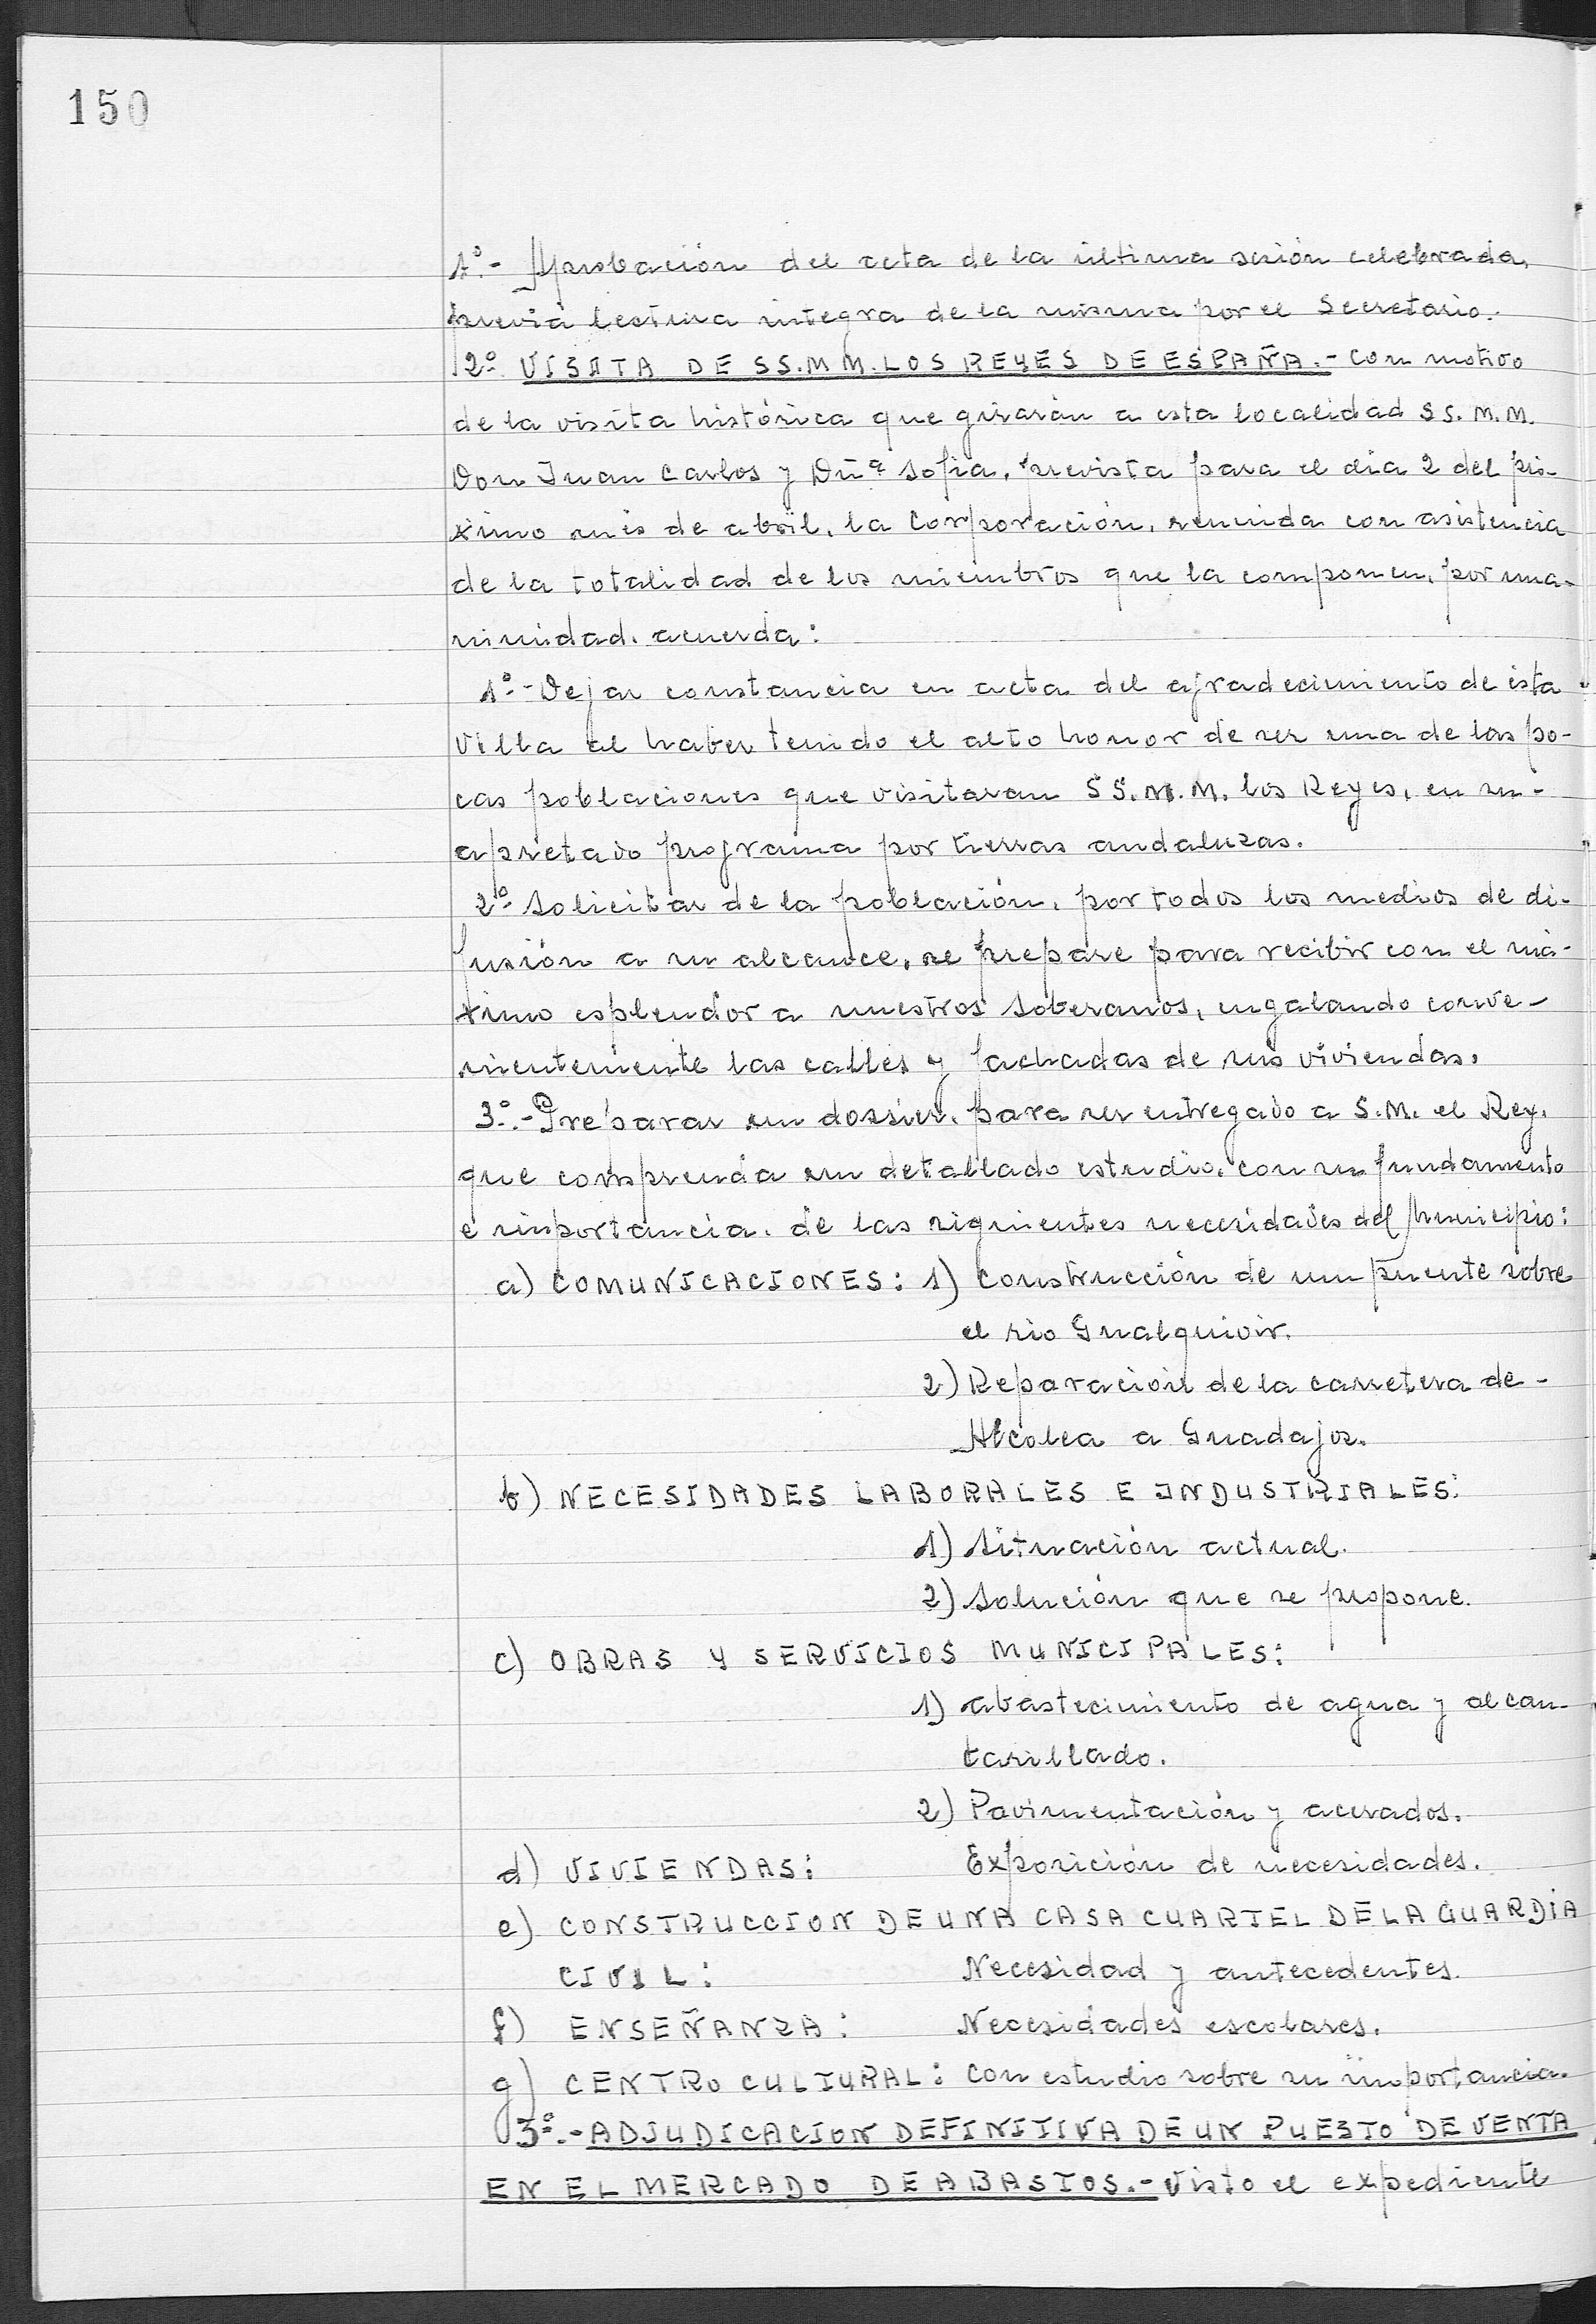 150
1º.- Aprobación del acta de la última sesión celebrada,
previa lectura integra de la misma por el Secretario.
2º. VISITA DE SS.MM. LOS REYES DE ESPAÑA.- Con motivo
de la visita histórica que girarán a esta localidad SS.M.M.
Don Juan Carlos y Dñª Sofia, prevista para el día 2 del pró-
ximo mes de abril, la Corporación, reunida con asistencia
de la totalidad de los miembros que la componen, por una-
nimidad, acuerda:
1º.- Dejar constancia en acta del agradecimiento de ésta
Villa al haber tenido el alto honor de ser una de las po-
cas poblaciones que visitaran SS.M.M. los Reyes, en su-
apretado programa por tierras andaluzas.
2º. Solicitar de la población, por todos los medios de di-
fusión a su alcance, se prepare para recibir con el má-
ximo esplendor a nuestros Soberanos, engalando conve-
nientemente las calles y fachadas de sus viviendas.
3º.- Preparar un dossier, para ser entregado a S.M. el Rey,
que comprenda un detallado estudio, con su fundamento
e importancia, de las siguientes necesidades del Municipio:
a) COMUNICACIONES: 1) Construcción de un Puente sobre
el rio Gualquivir.
2) Reparación de la carretera de-
Alcolea a Guadajoz.
b) NECESIDADES LABORALES E INDUSTRIALES:
1) Situación actual.
2) Solución que se propone.
c) OBRAS Y SERVICIOS MUNICIPALES:
1) abastecimiento de agua y alcan-
tarillado.
2) Pavimentación y acerados.
d) VIVIENDAS: Exposición de necesidades.
e) CONSTRUCCION DE UNA CASA CUARTEL DE LA GUARDIA
CIVIL: Necesidad y antecedentes.
f) ENSEÑANZA: Necesidades escolares.
g) CENTRO CULTURAL: Con estudio sobre su importancia.
3º.- ADJUDICACION DEFINITIVA DE UN PUESTO DE VENTA
EN EL MERCADO DE ABASTOS.- Visto el expediente